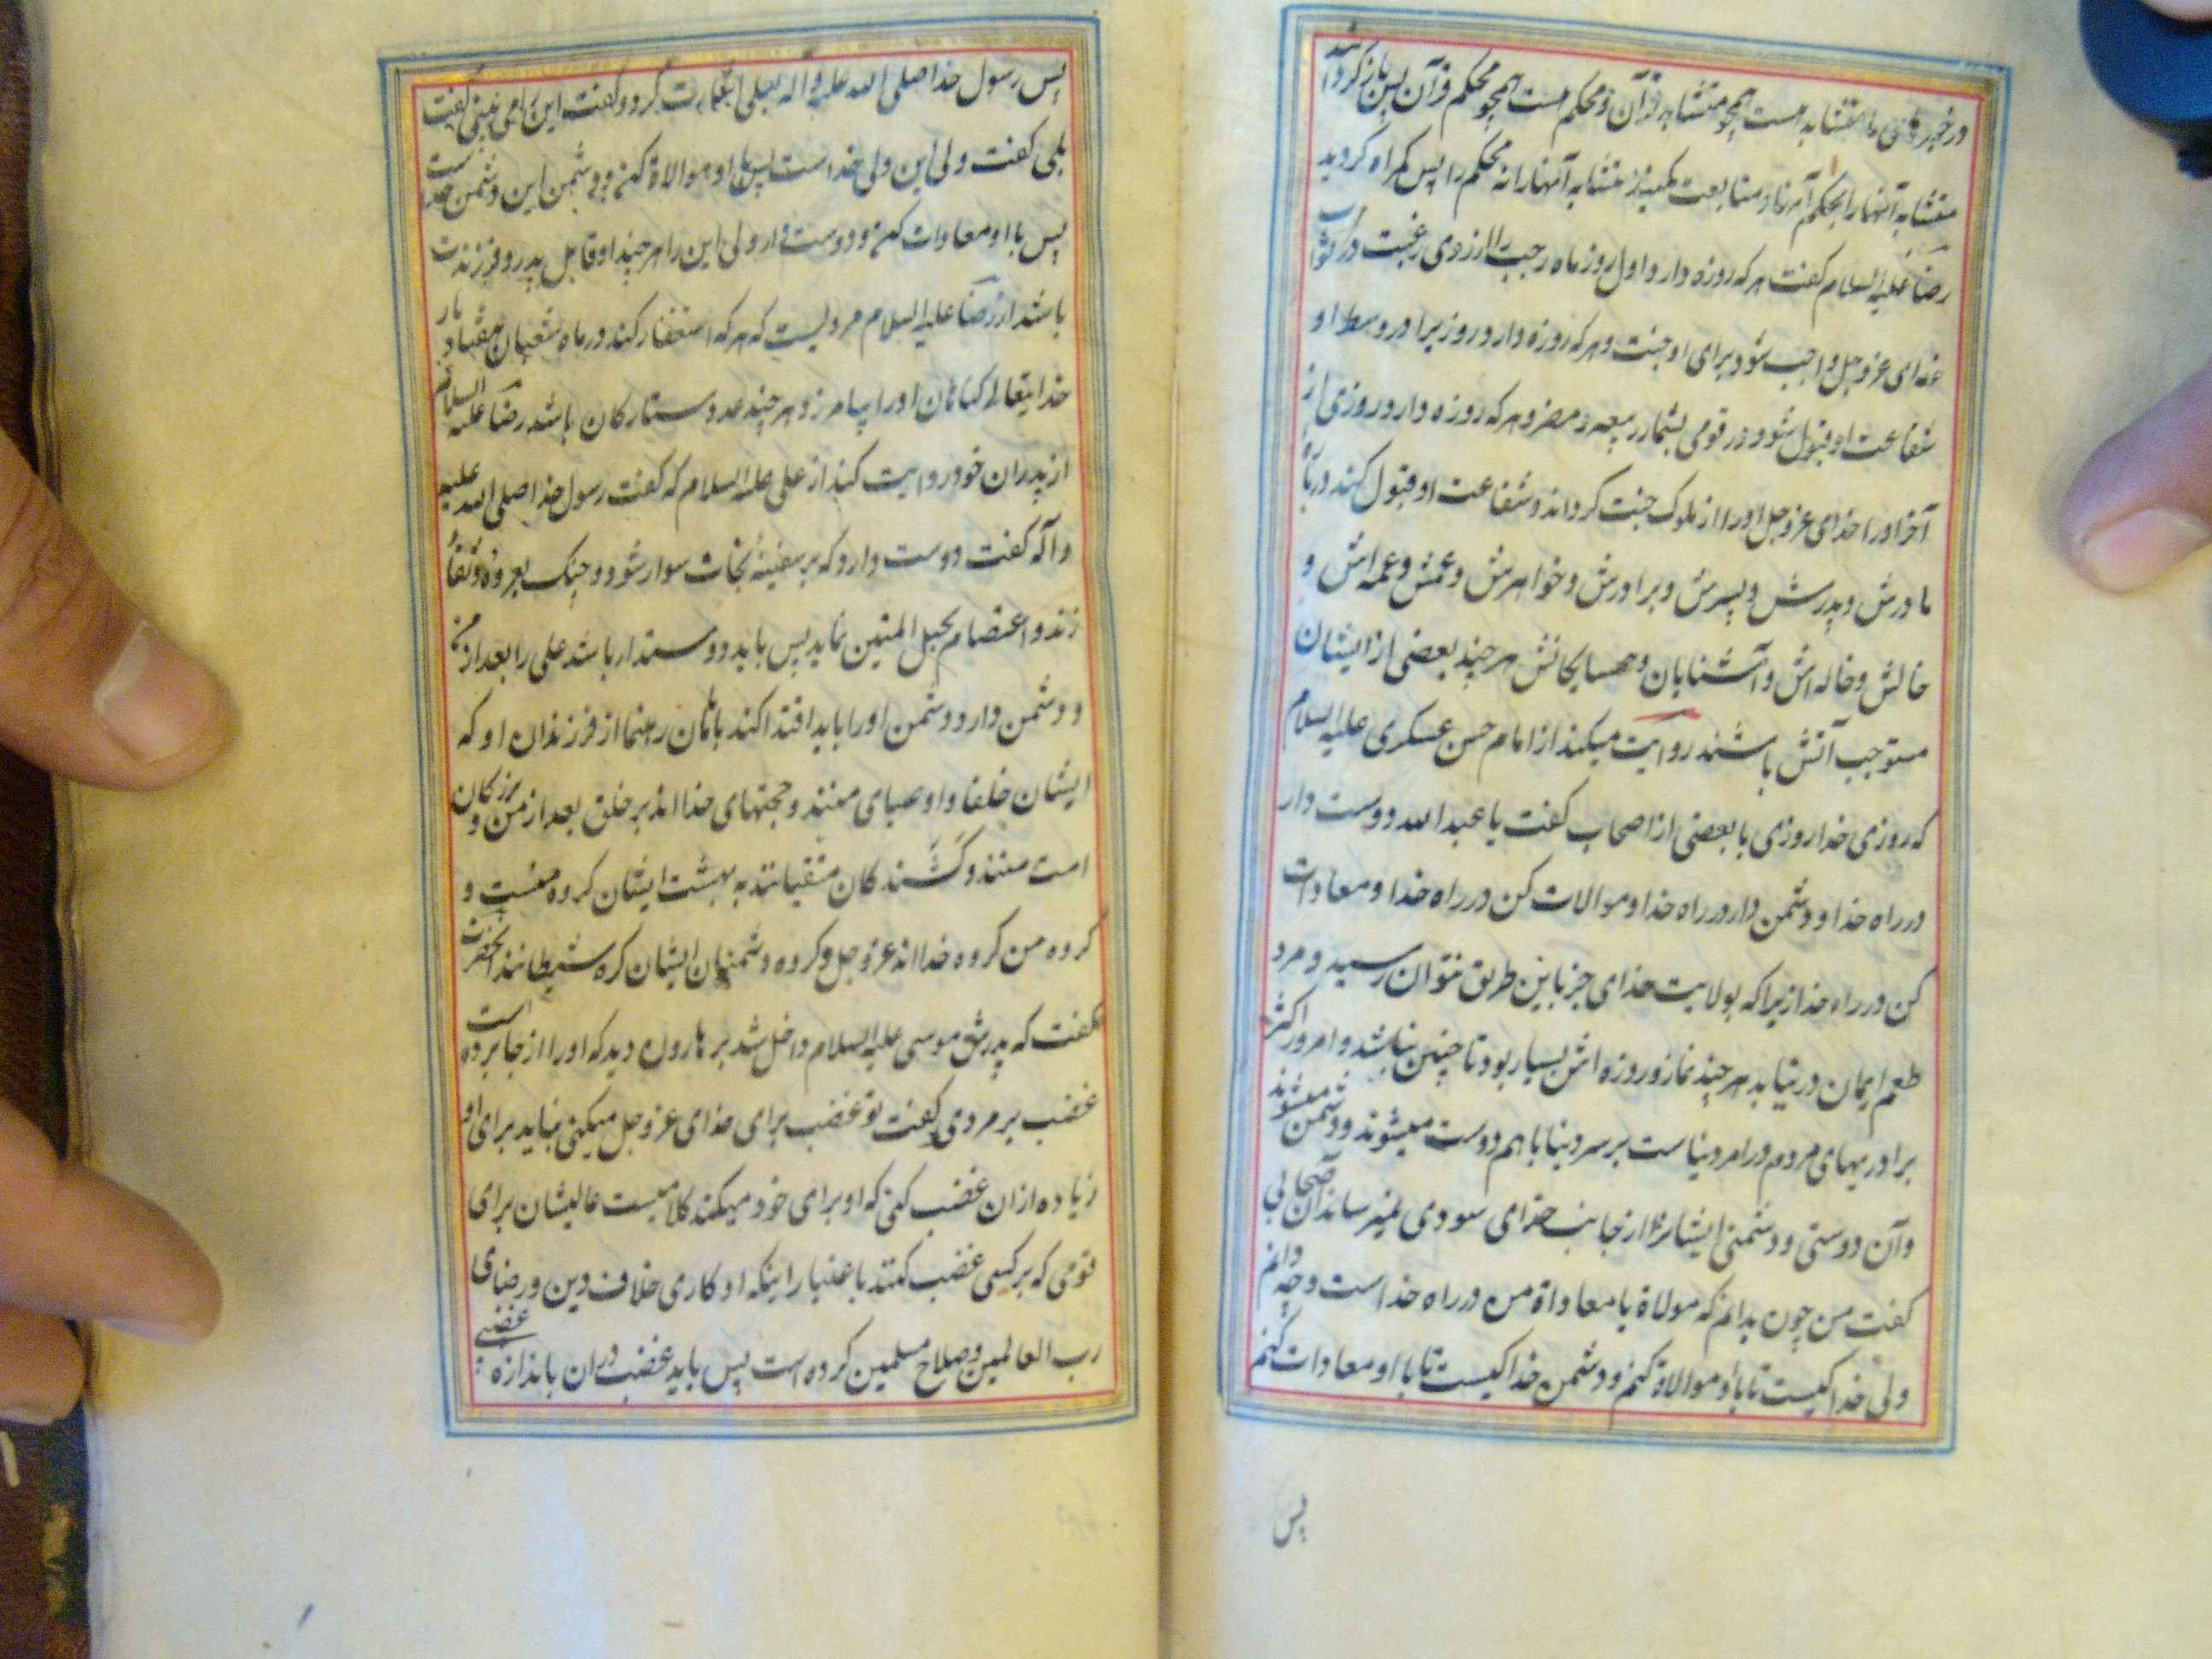 در خبرهای ما متشابه هست همچو متشابه قرآن و محکم هست همچو محکم قرآن پس باز کردانید
متشابه آنها را بمحکم آنها و متابعت مکنید متشابه آنها را نه محکم را پس کمراه کردید
رضا علیه السلام کفت هر که روزه دارد اول روز ماه رجب را از روی رغبت در ثواب
خدای عز و جل واجب شود برای او جنت و هر که روزه دارد روزیرا در وسط او
شفاعت او قبول شود در قومی بشمار ربیعه و مضر و هر که روزه دارد روزی از
آخر او را خدای عز و جل او را از ملوک جنت کرداند و شفاعت او قبول کند درباره
مادرش و پدرش و پسرش و برادرش و خواهرش و عمش و عمه اش و
خالش و خاله اش و آشنایان و همسایکانش هر چند بعضی از ایشان
مستوجب آتش باشند روایت میکند از امام حسن عسکری علیه السلام
که روزی خدا روزی با بعضی از اصحاب کفت یا عبد الله دوست دار
در راه خدا و دشمن دار در راه خدا و موالات کن در راه خدا و معادات
کن در راه خدا زیرا که بولایت خدای جز باین طریق نتوان رسید و مرد
طعم ایمان در نیابد هر چند نماز و روزه اش بسیار بود تا چنین نباشد و امروز اکثر
برادریهای مردم در امر دنیاست بر سر دنیا با هم دوست میشوند و دشمن میشوند
و آن دوستی و دشمنی ایشانرا از جانب خدای سودی نمیرساند آن صحابی
کفت من چون بدانم که مولاة یا معاداة من در راه خداست و چه دانم
ولی خدا کیست تا با او موالاة کنم و دشمن خدا کیست تا با او معادات کنم
پس
پس رسول خدا صلی الله علیه و آله بعلی اشارت کرد و کفت این را می بینی کفت
بلی کفت ولی این ولی خداست پس با او موالاة کن و دشمن این دشمن خداست
پس با او معادات کن و دوست دار ولی این را هر چند او قاتل پدر و فرزندت
باشد از رضا علیه السلام مرویست که هر که استغفار کند در ماه شعبان هفتاد بار
خدایتعالی کناهان او را بیامرزد هر چند عدد ستارکان باشد رضا علیه السلام
از پدران خود روایت کند از علی علیه السلام که کفت رسول خدا صلی الله علیه
و آله کفت دوست دارد که بر سفینۀ نجات سوار شود و چنک بعروة وثقا
زند و اعتصام بحبل المتین نماید پس باید دوستدار باشد علی را بعد از من
و دشمن دارد دشمن او را باید اقتدا کند بامامان رهنما از فرزندان او که
ایشان خلفا و اوصیای منند و حجتهای خدا اند بر خلق بعد از من و بزرکان
امت منند و کشندکان متقیانند به بهشت ایشان کروه منست و
کروه من کروه خدا اند عز و جل و کروه دشمنان ایشان کره شیطانند آنحضرت
کفت که پدرش موسی علیه السلام داخل شد بر هارون دید که او را از جا برده است
غضب بر مردی کفت تو غضب برای خدای عز و جل میکنی نباید برای او
زیاده از آن غضب کنی که او برای خود میکند کلامیست عالیشان برای
قومی که بر کسی غضب کنند باعتبار اینکه او کاری خلاف دین و رضای
رب العالمین و صلاح مسلمین کرده است پس باید غضب در آن باندازه غضبی